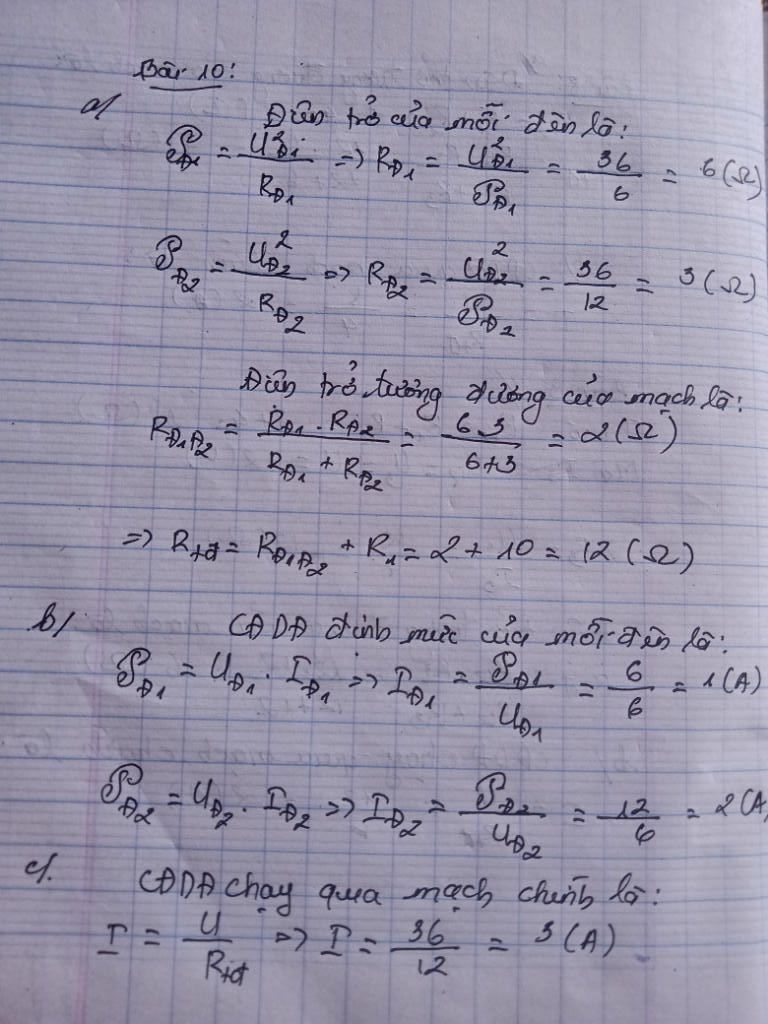 Bài 10:
a/ Điện trở của mỗi đèn là:
𝒫Đ1 = U²Đ1 / RĐ1 => RĐ1 = U²Đ1 / 𝒫Đ1 = 36 / 6 = 6 (Ω)
𝒫Đ2 = U²Đ2 / RĐ2 => RĐ2 = U²Đ2 / 𝒫Đ2 = 36 / 12 = 3 (Ω)
Điện trở tương đương của mạch là:
RĐ1Đ2 = RĐ1 . RĐ2 / RĐ1 + RĐ2 = 6.3 / 6+3 = 2 (Ω)
=> Rtđ = RĐ1Đ2 + R1 = 2 + 10 = 12 (Ω)
b/ CĐDĐ định mức của mỗi đèn là:
𝒫Đ1 = UĐ1 . IĐ1 => IĐ1 = 𝒫Đ1 / UĐ1 = 6 / 6 = 1 (A)
𝒫Đ2 = UĐ2 . IĐ2 => IĐ2 = 𝒫Đ2 / UĐ2 = 12 / 6 = 2 (A)
c/. CĐDĐ chạy qua mạch chính là:
I = U / Rtđ => I = 36 / 12 = 3 (A)